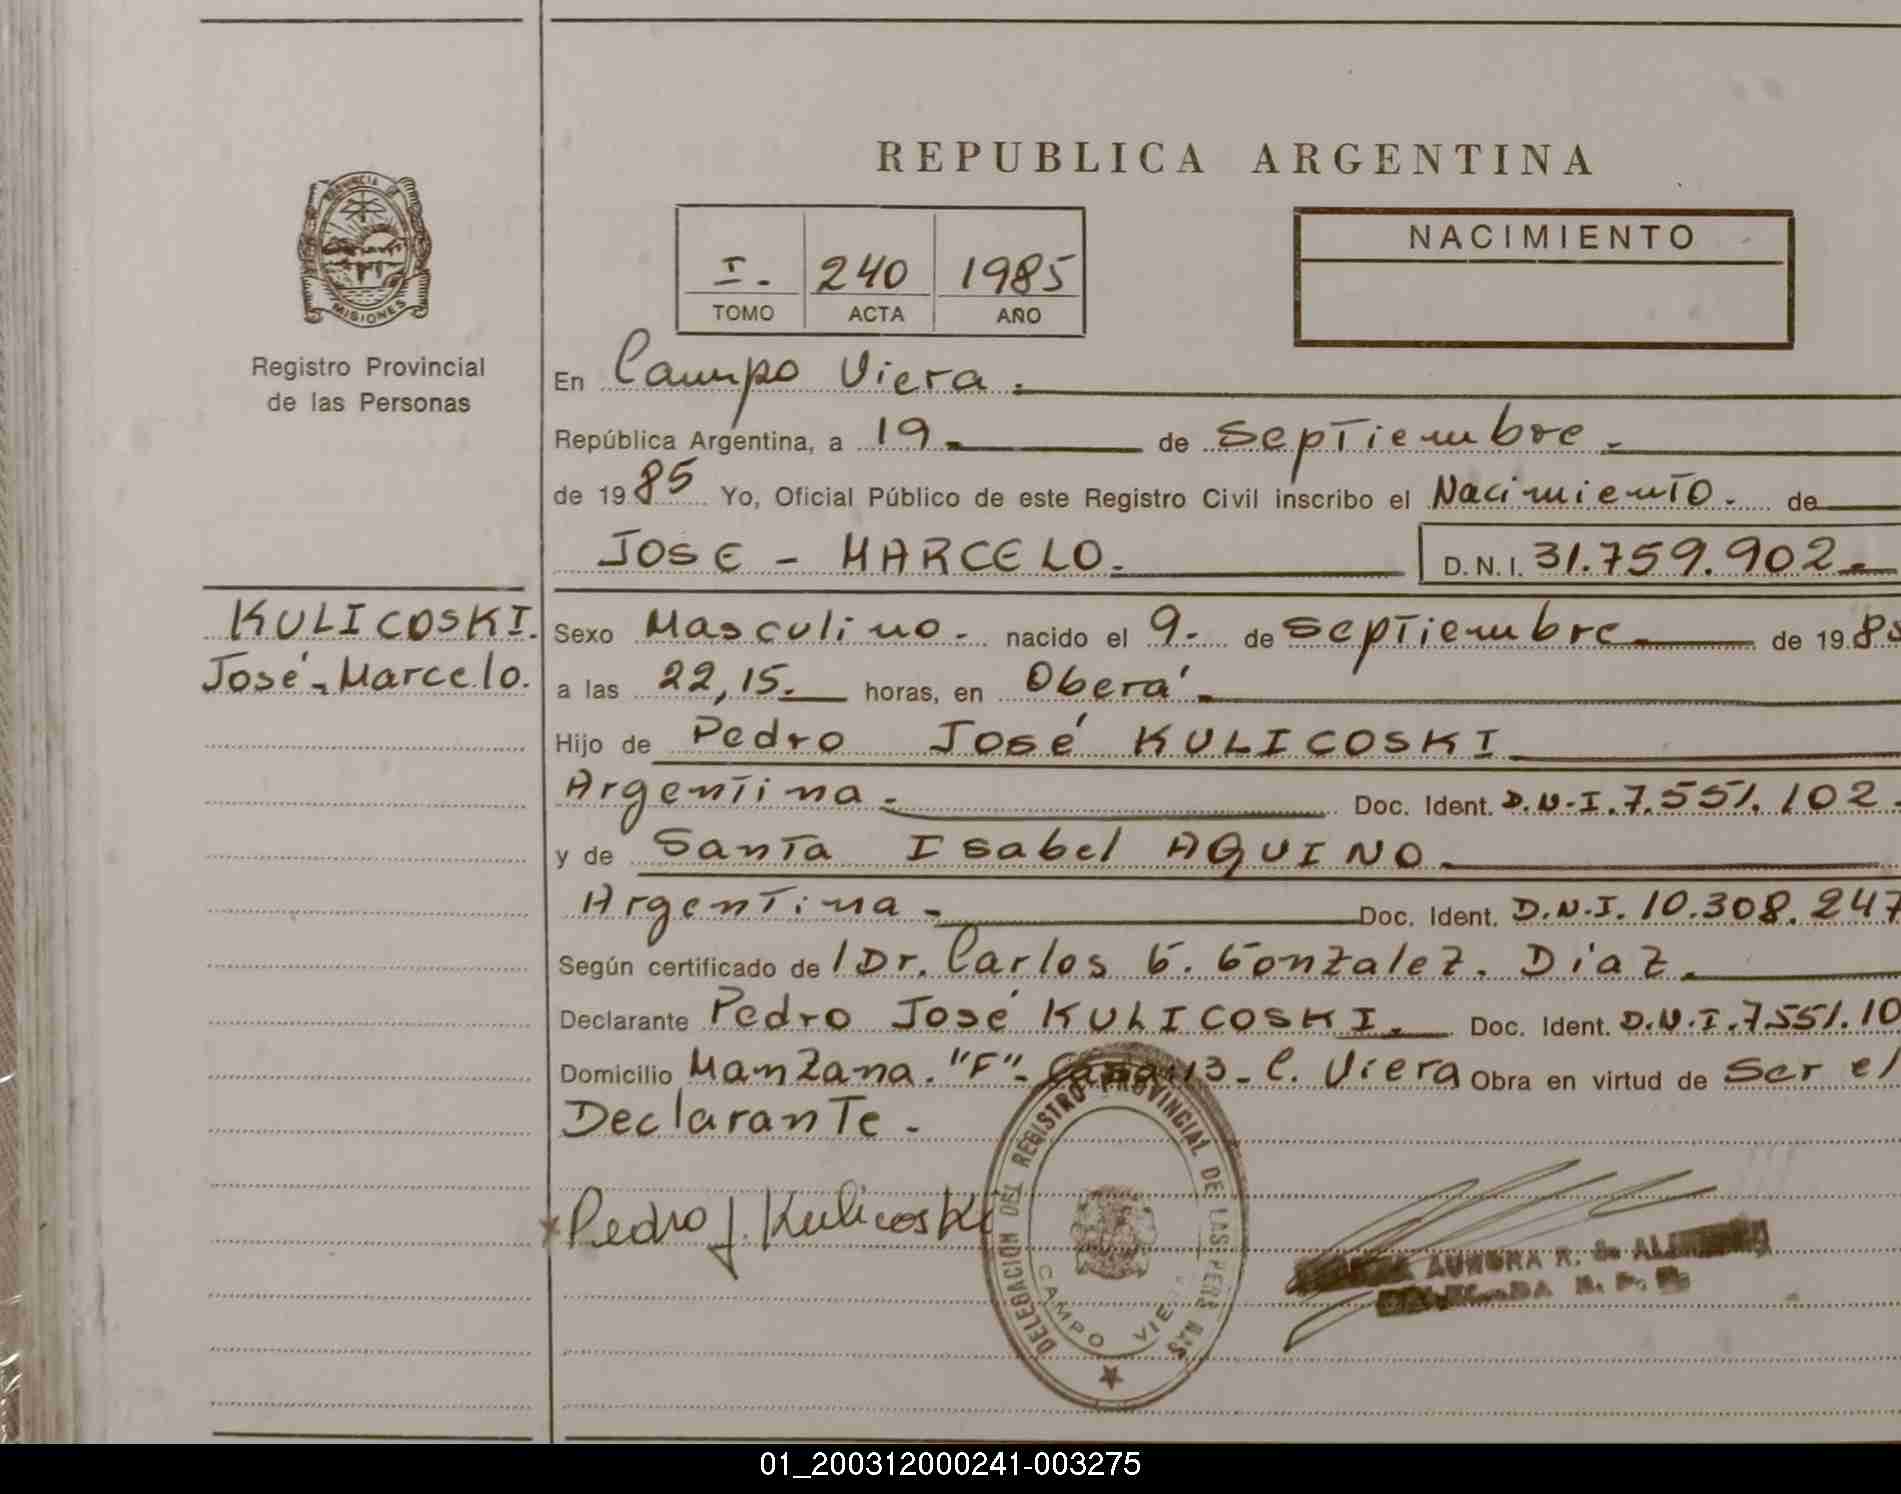 REPUBLICA ARGENTINA
PROVINCIA DE
MISIONES
Registro Provincial
de las Personas
I. 240 1985
TOMO ACTA AÑO
NACIMIENTO
En Campo Viera.
República Argentina, a 19 de Septiembre.
de 1985 Yo, Oficial Público de este Registro Civil inscribo el Nacimiento. de
JOSE - MARCELO. D.N.I. 31.759.902.
KULICOSKI.
José-Marcelo.
Sexo Masculino. nacido el 9. de Septiembre de 1985
a las 22,15. horas, en Oberá
Hijo de Pedro José KULICOSKI
Argentina. Doc. Ident. D.N.I. 7.551.102.
y de Santa Isabel AQUINO
Argentina Doc. Ident. D.N.I. 10.308.247
Según certificado de l Dr. Carlos G. Gonzalez. Díaz.
Declarante Pedro José KULICOSKI. Doc. Ident. D.N.I. 7.551.10
Domicilio Manzana. "F"- Casa 13 - C. Viera Obra en virtud de Ser el
Declarante.
Pedro J. Kulicoski
DELEGACIÓN DEL REGISTRO PROVINCIAL DE LAS PERSONAS
CAMPO VIE
AURORA R. S. R. P. P.
01_200312000241-003275